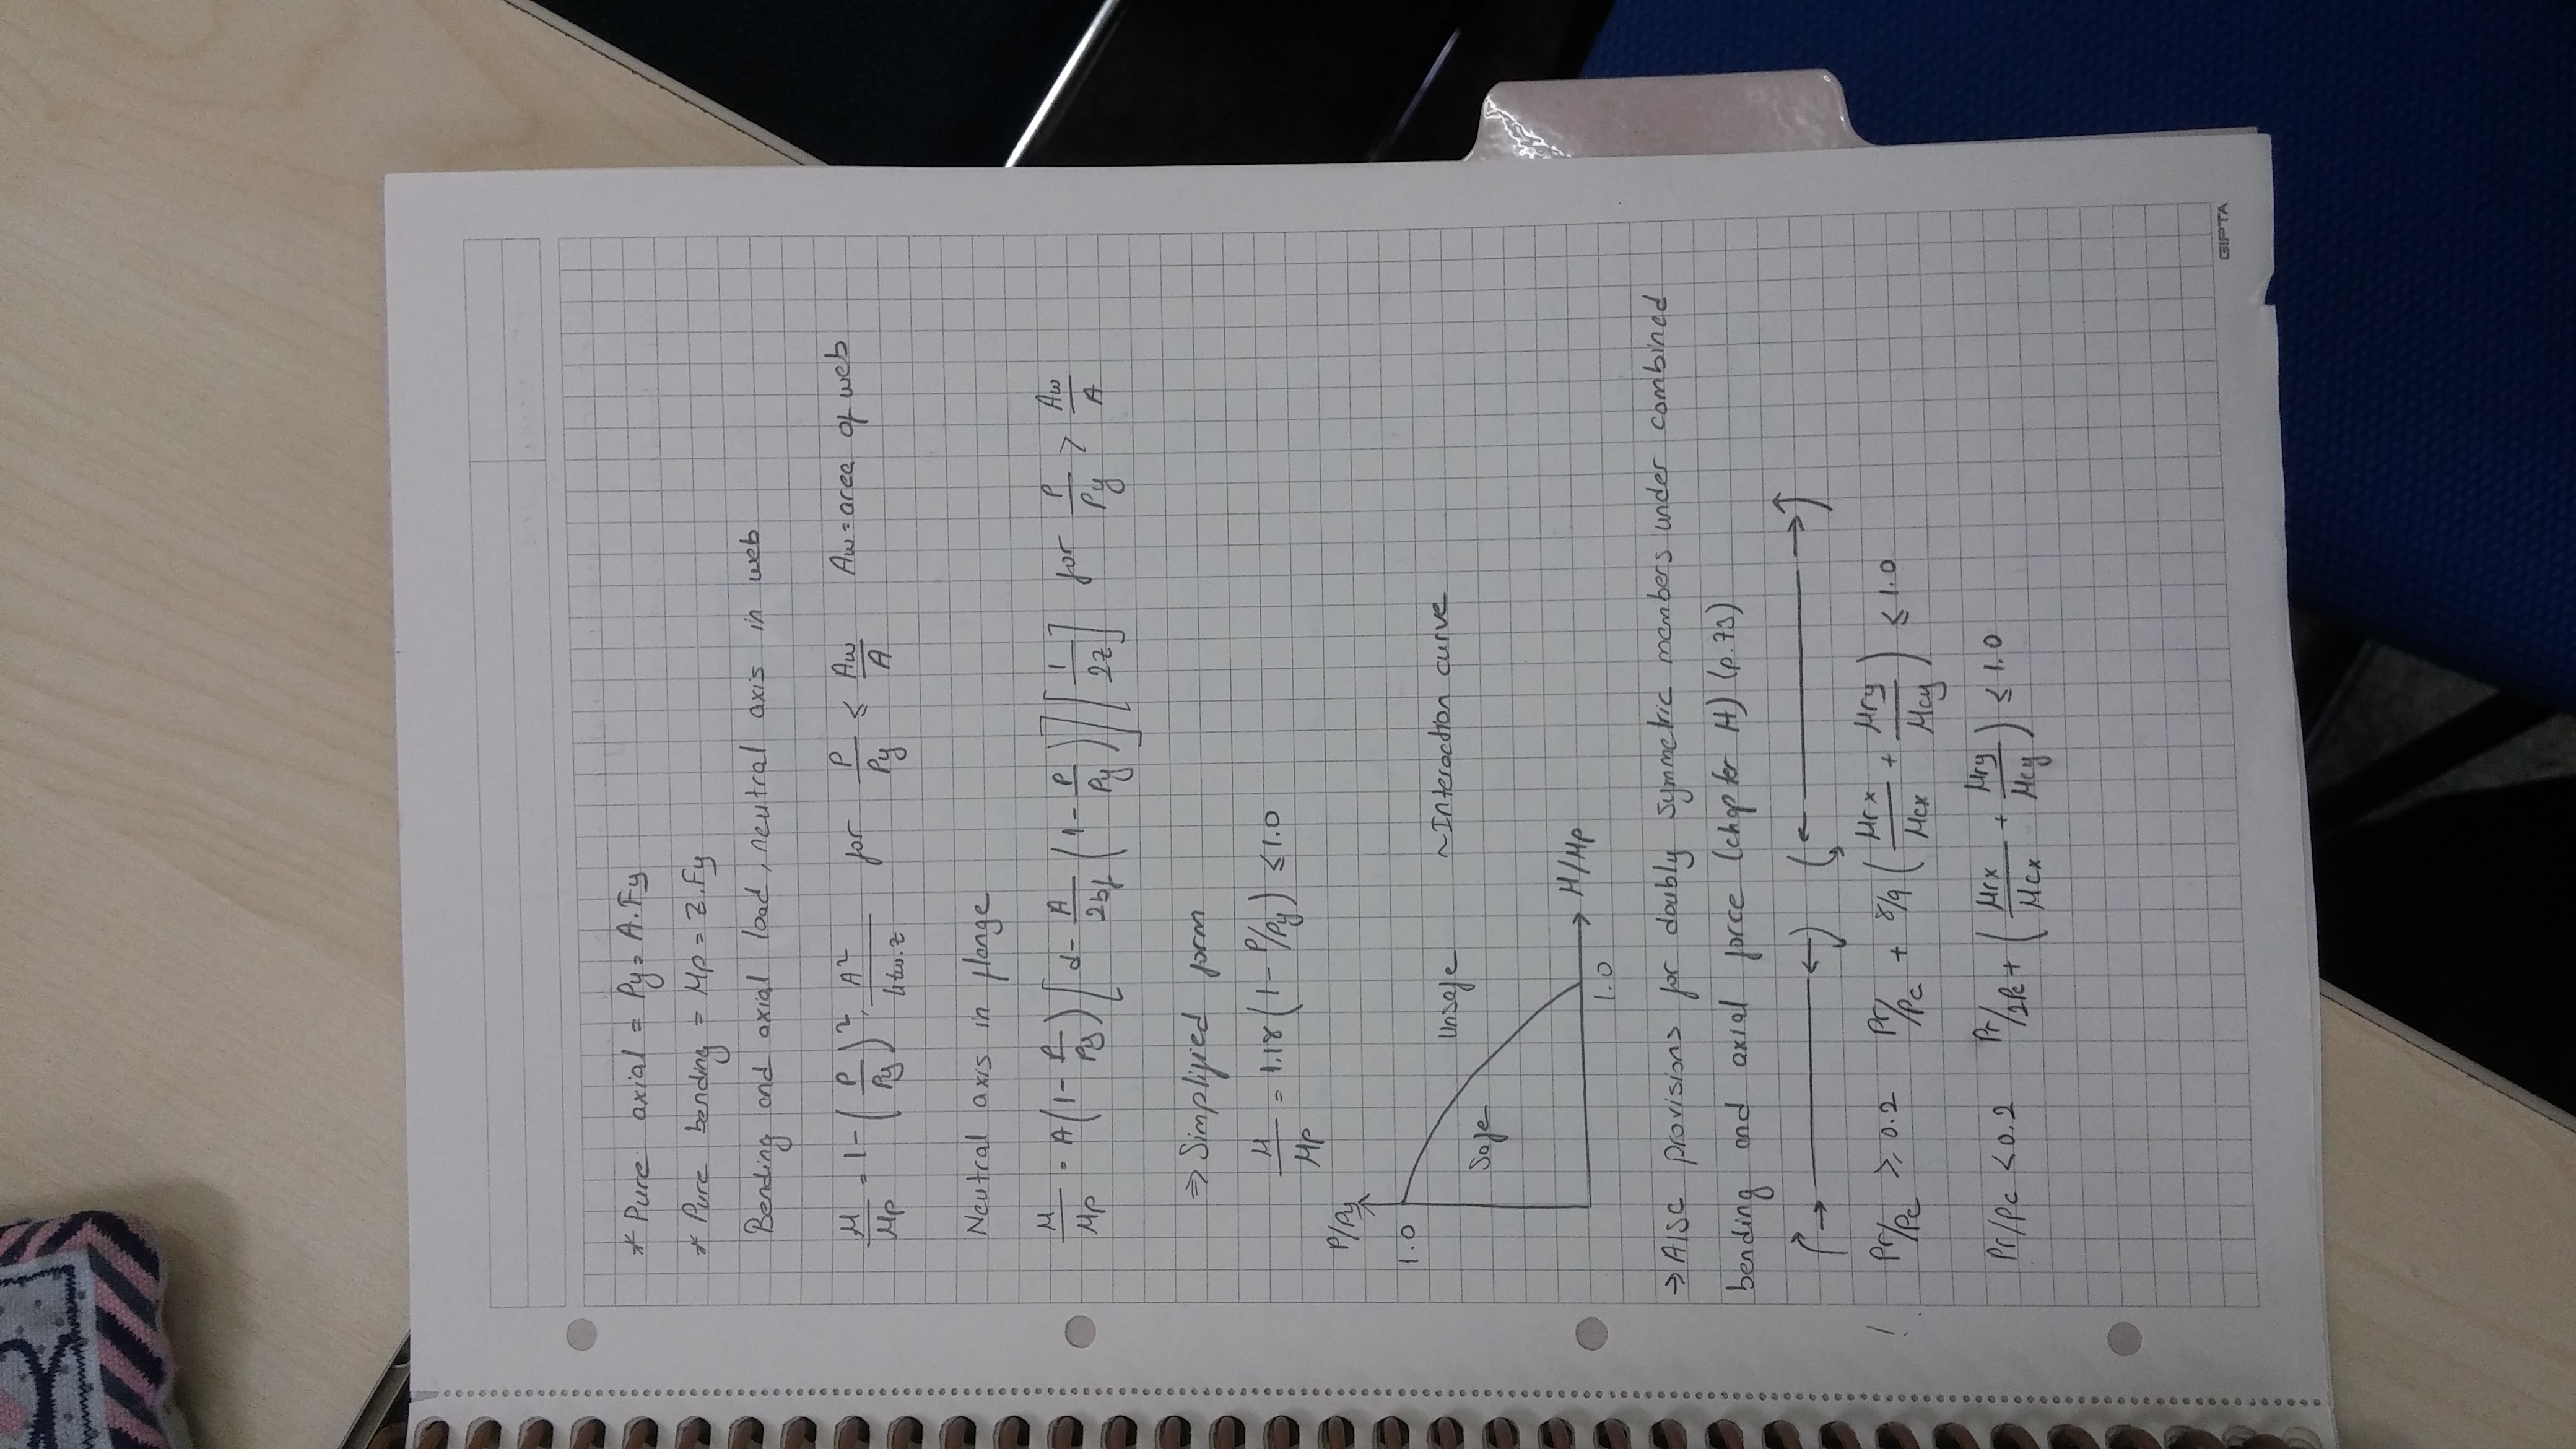 * Pure axial = Py = A.Fy
* Pure bending = Mp = Z.Fy
Bending and axial load, neutral axis in web
M/Mp = 1 - (P/Py)² . A²/4tw.z for P/Py ≤ Aw/A Aw = area of web
Neutral axis in flange
M/Mp = A(1 - P/Py) [d - A/2bf (1 - P/Py)] [1/2z] for P/Py > Aw/A
⇒ Simplified form
M/Mp = 1.18 (1 - P/Py) ≤ 1.0
P/Py
1.0
Unsafe ~Interaction curve
Safe
M/Mp
1.0
→ AISC provisions for doubly symmetric members under combined
bending and axial force (chapter H) (p.73)
! Pr/Pc ≥ 0.2 Pr/Pc + 8/9 (Mrx/Mcx + Mry/Mcy) ≤ 1.0
Pr/Pc < 0.2 Pr/2Pc + (Mrx/Mcx + Mry/Mcy) ≤ 1.0
GIPTA